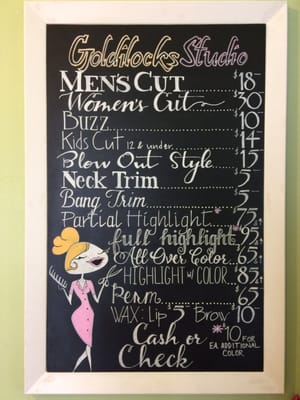 Goldilocks Studio
MEN'S CUT $18-
Women's Cut $30
Buzz $10
Kids Cut 12 & under $14
Blow Out Style $15
Neck Trim $5-
Bang Trim $5-
Partial Highlight* $75↑
full highlight* $95↑
All Over Color $65↑
HIGHLIGHT w/ COLOR $85↑
Perm $65
WAX: Lip $5- Brow $10
Cash or
Check
*$10 FOR
EA. ADDITIONAL
COLOR